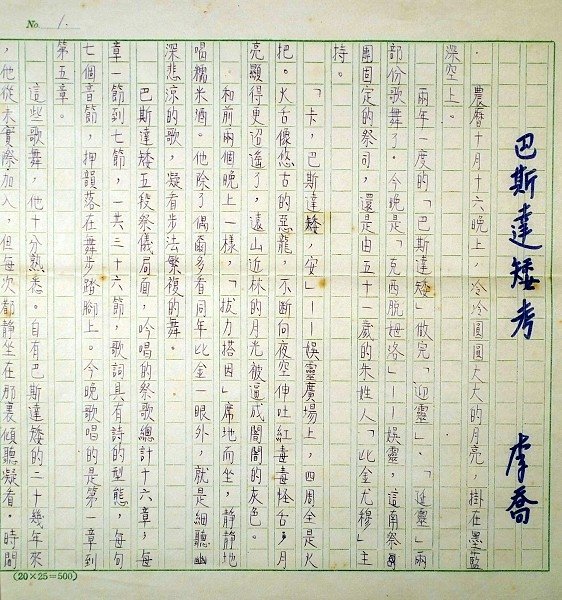 No. 1.
巴斯達矮考　李喬
農曆十月十六晚上,冷冷圓圓大大的月亮,掛在墨藍
深空上。
兩年一度的「巴斯達矮」做完「迎靈」、「延靈」兩
部份歌舞了。今晚是「克西脫姆洛」——娛靈,這南祭
團固定的祭司,還是由五十一歲的朱姓人「比金尤穆」主
持。
「卡,巴斯達矮,安」——娛靈廣場上,四周全是火
把。火舌像悠古的惡龍,不斷向夜空伸吐紅毒毒怪舌,月
亮顯得更迢遙了,遠山近林的月光被逼成闇闇的灰色。
和前兩個晚上一樣,「拔力搭因」席地而坐,靜靜地
喝糯米酒。他除了偶爾多看同年比金一眼外,就是細聽幽
深悲涼的歌,凝看步法繁複的舞。
巴斯達矮五段祭儀局面,吟唱的祭歌總計十六章,每
章一節到七節,一共三十六節,歌詞具有詩的型態,每句
七個音節,押韻落在舞步踏腳上。今晚歌唱的是第 章到
第五章。
這些歌舞,他十分熟悉。自有巴斯達矮的二十幾年來
,他從未實際加入,但每次都靜坐在那裏傾聽凝看。時間
(20×25=500)